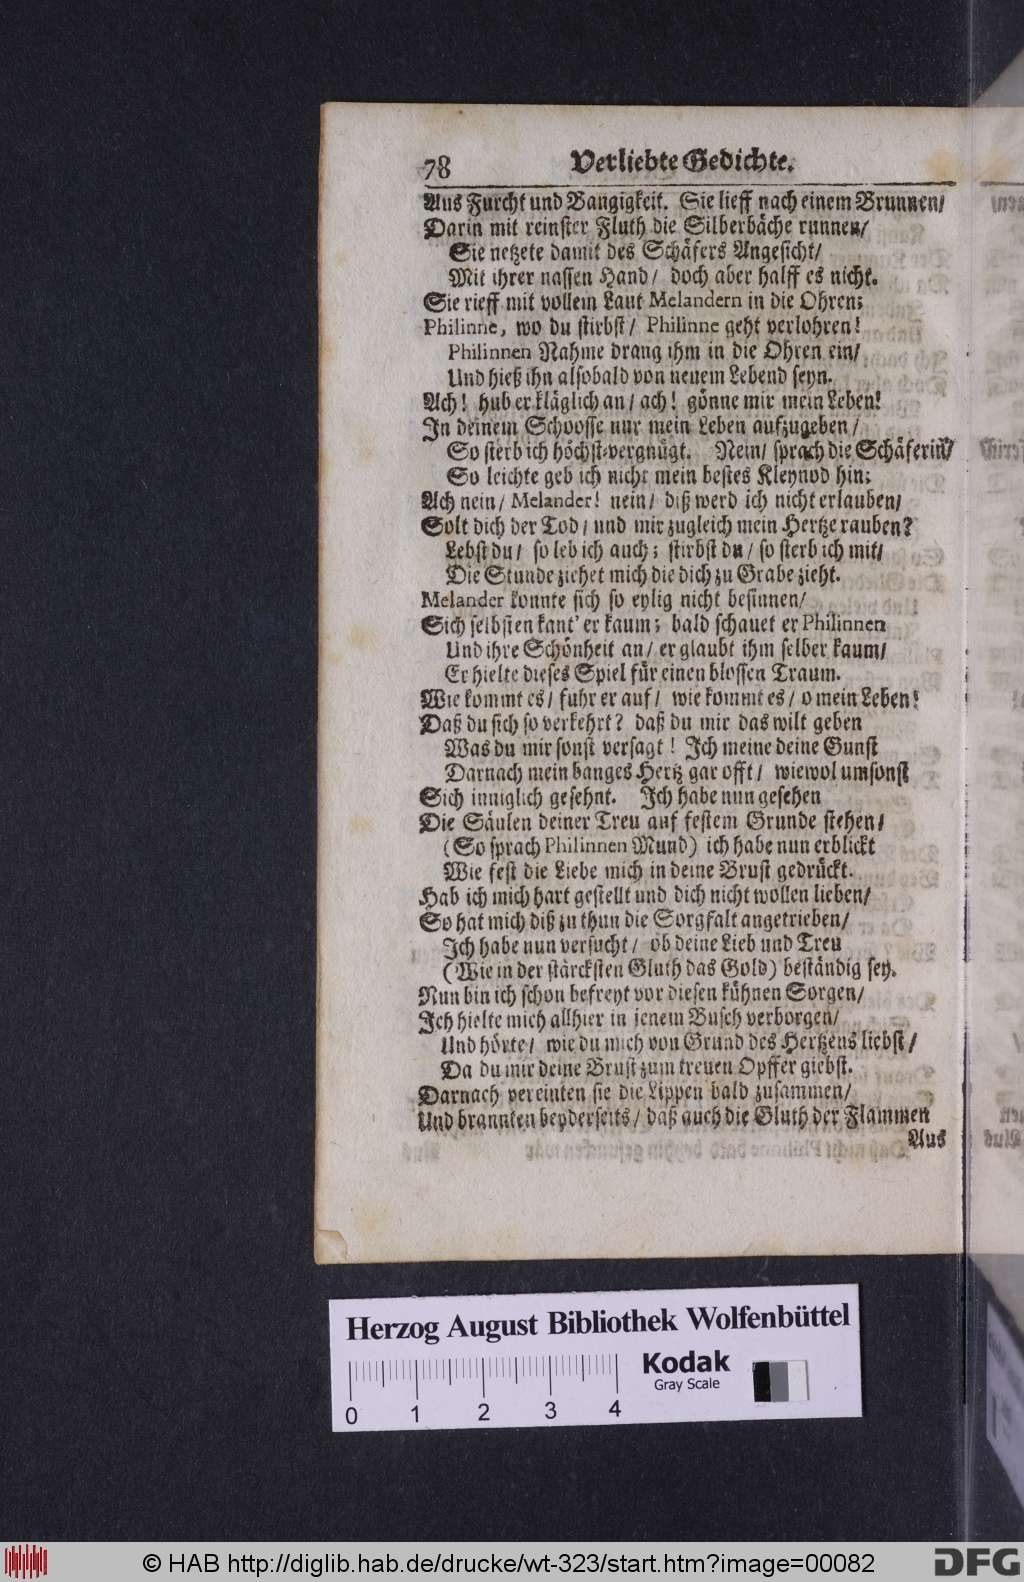 78 Verliebte Gedichte.
Aus Furcht und Bangigkeit. Sie lieff nach einem Brunnen/
Darin mit reinster Fluth die Silberbäche runnen/
Sie netzete damit des Schäfers Angesicht/
Mit ihrer nassen Hand/ doch aber halff es nicht.
Sie rieff mit vollem Laut Melandern in die Ohren;
Philinne, wo du stirbst/ Philinne geht verlohren!
Philinnen Nahme drang ihm in die Ohren ein/
Und hieß ihn alsobald von neuem Lebend seyn.
Ach! hub er kläglich an/ ach! gönne mir mein Leben!
In deinem Schoosse nur mein Leben aufzugeben/
So sterb ich höchst-vergnügt. Nein/ sprach die Schäferin/
So leichte geb ich nicht mein bestes Kleynod hin;
Ach nein/ Melander! nein/ diß werd ich nicht erlauben/
Solt dich der Tod/ und mir zugleich mein Hertze rauben?
Lebst du/ so leb ich auch; stirbst du/ so sterb ich mit/
Die Stunde ziehet mich die dich zu Grabe zieht.
Melander konnte sich so eylig nicht besinnen/
Sich selbsten kant' er kaum; bald schauet er Philinnen
Und ihre Schönheit an/ er glaubt ihm selber kaum/
Er hielte dieses Spiel für einen blossen Traum.
Wie kommt es/ fuhr er auf/ wie kommt es/ o mein Leben!
Daß du sich so verkehrt? daß du mir das wilt geben
Was du mir sonst versagt! Ich meine deine Gunst
Darnach mein banges Hertz gar offt/ wiewol umsonst
Sich inniglich gesehnt. Ich habe nun gesehen
Die Säulen deiner Treu auf festem Grunde stehen/
(So sprach Philinnen Mund) ich habe nun erblickt
Wie fest die Liebe mich in deine Brust gedrückt.
Hab ich mich hart gestellt und dich nicht wollen lieben/
So hat mich diß zu thun die Sorgfalt angetrieben/
Ich habe nun versucht/ ob deine Lieb und Treu
(Wie in der stärcksten Gluth das Gold) beständig sey.
Nun bin ich schon befreyt vor diesen kühnen Sorgen/
Ich hielte mich allhier in jenem Busch verborgen/
Und hörte/ wie du mich von Grund des Hertzens liebst/
Da du mir deine Brust zum treuen Opffer giebst.
Darnach vereinten sie die Lippen bald zusammen/
Und brannten beyderseits/ daß auch die Gluth der Flammen
Aus
Herzog August Bibliothek Wolfenbüttel
Kodak
Gray Scale
0 1 2 3 4
© HAB http://diglib.hab.de/drucke/wt-323/start.htm?image=00082
DFG